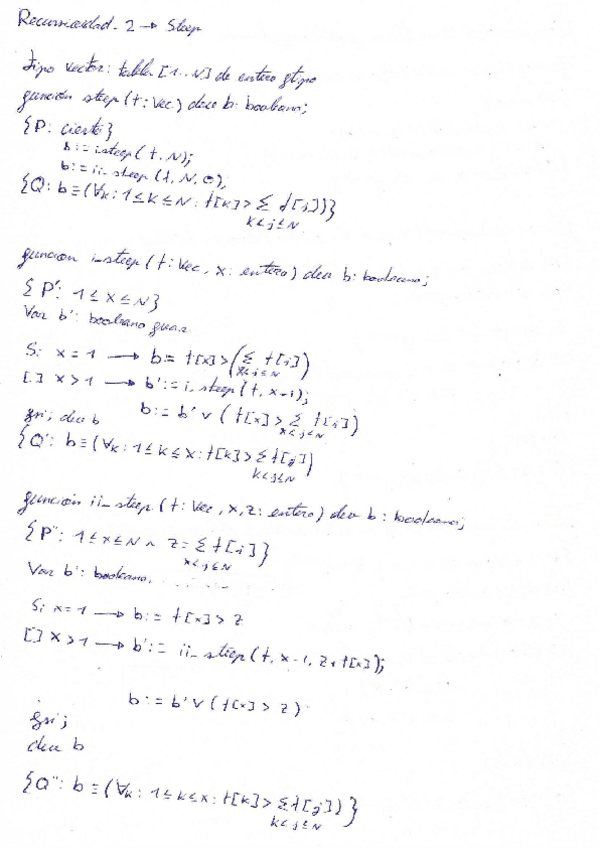 Recursividad - 2 → Steep
tipo vector: tabla [1..N] de entero ftipo
función steep (t: vec) dev b: booleano;
{P: cierto}
b := isteep(t, N);
b := ii_steep (t, N, 0);
{Q: b ≡ (∀k: 1≤k≤N: t[k] > Σ t[j])}
k<j≤N
función i_steep (t: vec, x: entero) dev b: booleano;
{P': 1≤x≤N}
Var b': booleano fvar
Si x = 1 → b := t[x] > (Σ t[j])
x<j≤N
[] x > 1 → b' := i_steep (t, x-1);
b := b' ∨ (t[x] > Σ t[j])
x<j≤N
fsi; dev b
{Q': b ≡ (∀k: 1≤k≤x: t[k] > Σ t[j])
k<j≤N
función ii_steep (t: vec, x, z: entero) dev b: booleano;
{P'': 1≤x≤N ∧ z = Σ t[j]}
x<j≤N
Var b': booleano.
Si x = 1 → b := t[x] > z
[] x > 1 → b' := ii_steep (t, x-1, z+t[x]);
b := b' ∨ (t[x] > z)
fsi;
dev b
{Q'': b ≡ (∀k: 1≤k≤x: t[k] > Σ t[j])}
k<j≤N